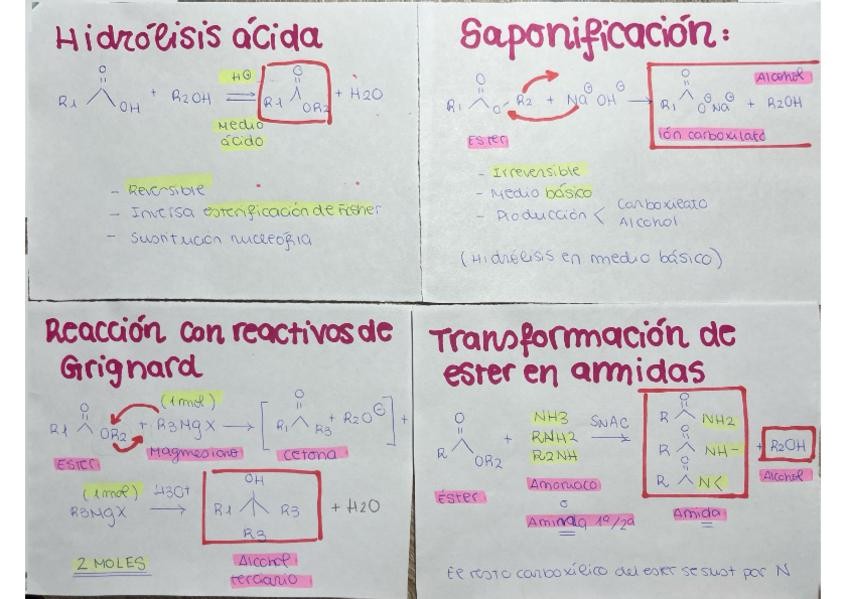 Hidrólisis ácida
O
R1 OH + R2OH H⊕ ⇌ O R1 OR2 + H2O
Medio
ácido
- Reversible
- Inversa esterificación de Fisher
- Sustitución nucleofila
Saponificación:
O
R1 O R2 + Na⊕ OH⊖ → O R1 O⊖ Na⊕ + R2OH
Alcohol
Ester
ión carboxilato
- Irreversible
- Medio básico
- Producción < Carboxilato
Alcohol
(Hidrólisis en medio básico)
Reacción con reactivos de
Grignard
(1mol)
O
R1 OR2 + R3MgX → [ O R1 R3 + R2O⊖ ] +
Ester
Magnesiano
cetona
(1mol)
R3MgX H3O+ → OH R1 R3 R3 + H2O
2 MOLES
Alcohol
terciario
Transformación de
ester en amidas
O
R OR2 + NH3 RNH2 R2NH SNAC →
O
R NH2
O
R NH-
O
R N<
+ R2OH
Alcohol
Éster
Amoniaco
o
1ª/2ª
Amida
El resto carboxílico del ester se sust por N